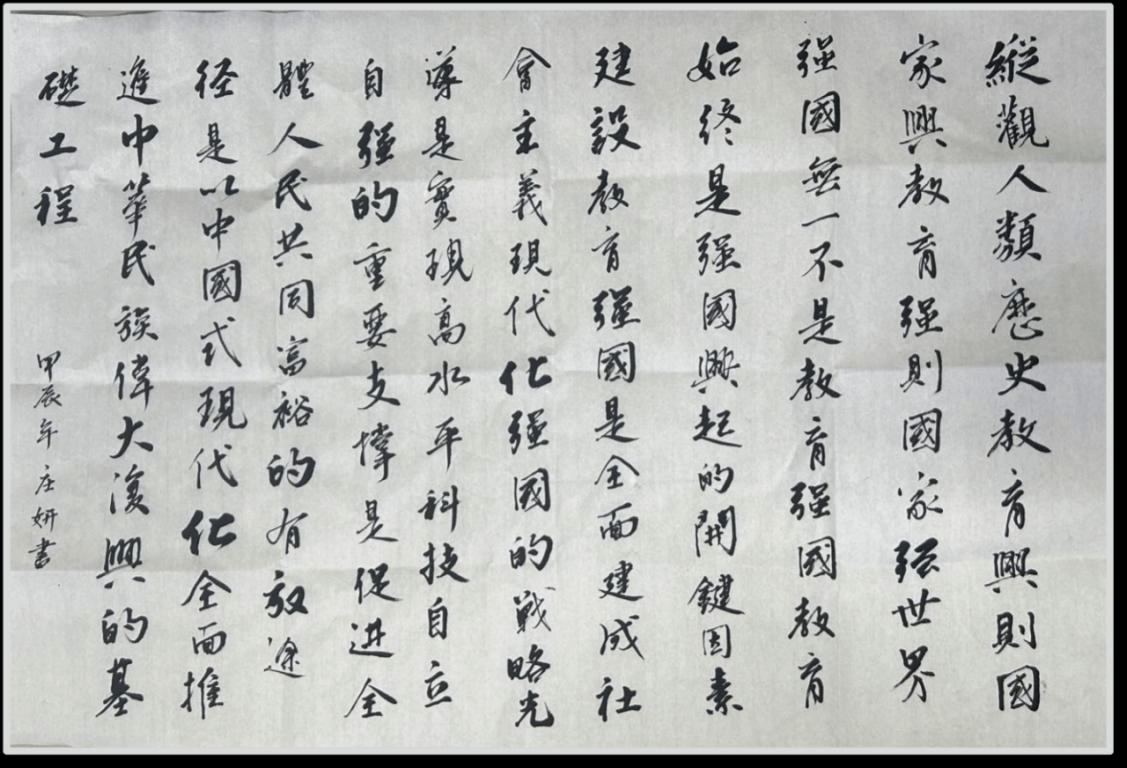 縱觀人類歷史教育興則國
家興教育强則國家强世界
强國無一不是教育强國教育
始終是强國興起的開鍵因素
建設教育强國是全面建成社
會主義現代化强國的戰略先
導是實現高水平科技自立
自强的重要支撑是促进全
體人民共同富裕的有效途
径是以中國式現代化全面推
進中華民族偉大復興的基
礎工程
甲辰年庄妍書